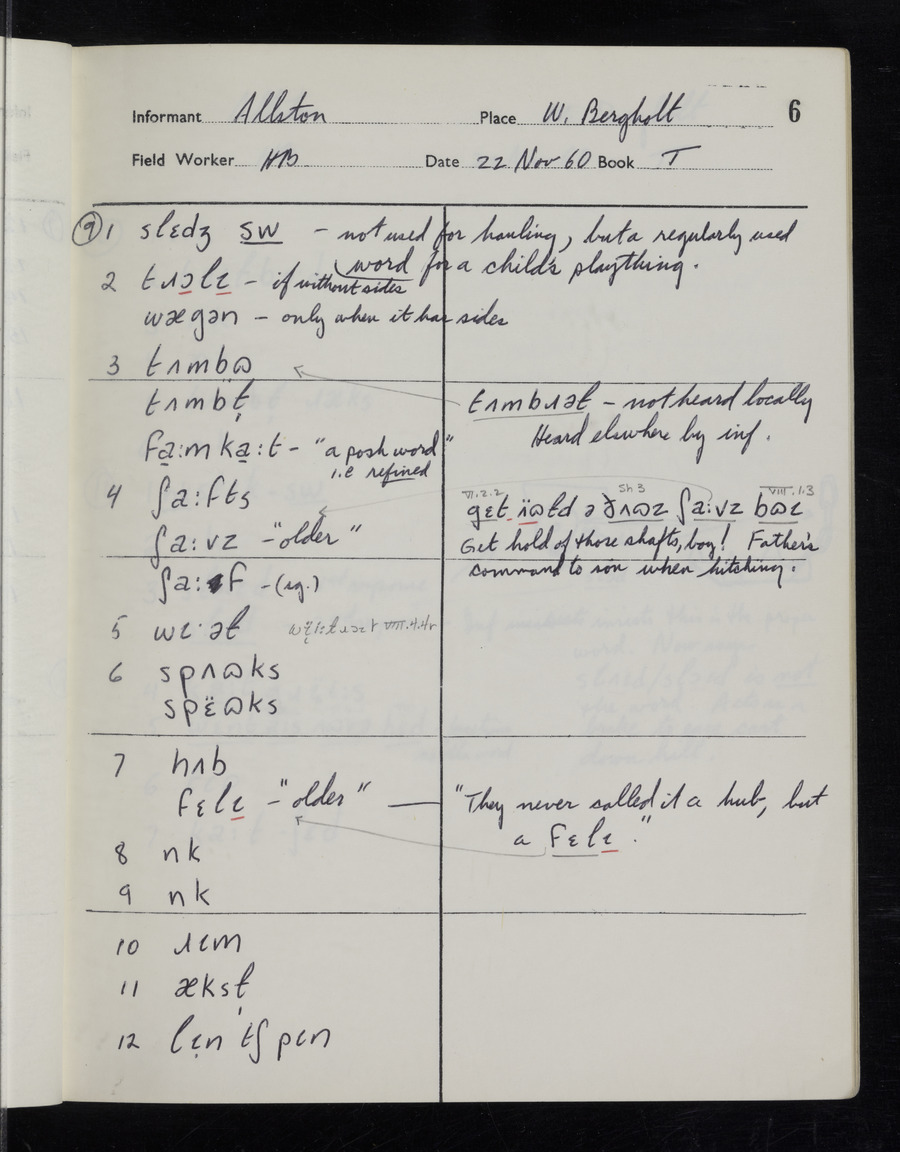 Informant Allston Place W. Bergholt 6
Field Worker HB Date 22 Nov 60 Book T
⑨ 1 slɛdʒ sw – not used for hauling, but a regularly used
word for a child's plaything.
2 tɹɔlɪ – if without sides
wægən – only when it has sides
3 tʌmbɷ
tʌmbt̩ tʌmbɹət – not heard locally
fa̤:mka̤:t – "a posh word" Heard elsewhere by inf.
i.e refined
4 ʃa:fts VI.2.2 Sh 3 VIII.1.3
gɛt ɷtd ə ðʌɷz ʃa:vz bɷɪ
ʃa:vz – "older" Get hold of those shafts, boy! Father's
ʃa:f – (sg.) command to son when hitching.
5 wɪ·ət VIII.4.4
6 spʌɷks
spɛ̈ɷks
7 hʌb
fɛlɪ – "older" — "They never called it a hub, but
a fɛlɪ."
8 nk
9 nk
10 ɹɪm
11 ækst̩
12 lɪn tʃ pɪn